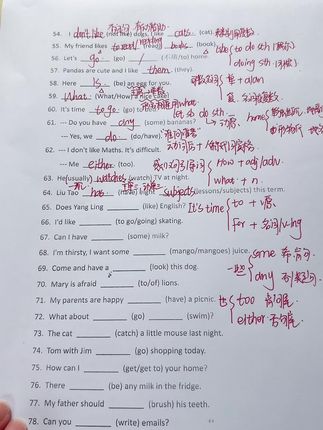 54. I don't like (not like) dogs. I like cats (cat).
55. My friend likes to read/reading (read) books (book).
56. Let's go (go) / (不填/to) home.
57. Pandas are cute and I like them (they).
58. Here is (be) an egg for you.
59. What (What/How) a nice
60. It's time to go (go) to
let sb do sth
61. --- Do you have any (some) bananas?
--- Yes, we do (do/have).
62. --- I don't like Maths. It's difficult.
--- Me either (too).
63. He (usually) watches (watch) TV at night.
64. Liu Tao has subjects (lessons/subjects) this term.
65. Does Yang Ling ______ (like) English?
66. I'd like ______ (to go/going) skating.
67. Can I have ______ (some) milk?
68. I'm thirsty, I want some ______ (mango/mangoes) juice.
69. Come and have a ______ (look) this dog.
70. Mary is afraid ______ (to/of) lions.
71. My parents are happy ______ (have) a picnic.
72. What about ______ (go) ______ (swim)?
73. The cat ______ (catch) a little mouse last night.
74. Tom with Jim ______ (go) shopping today.
75. How can I ______ (get/get to) your home?
76. There ______ (be) any milk in the fridge.
77. My father should ______ (brush) his teeth.
78. Can you ______ (write) emails?
like to do sth
doing sth
How + adj/adv.
what + n.
It's time
to + v原
for + 名词/v-ing
some 肯
any 否/疑问
也
too 肯
either 否